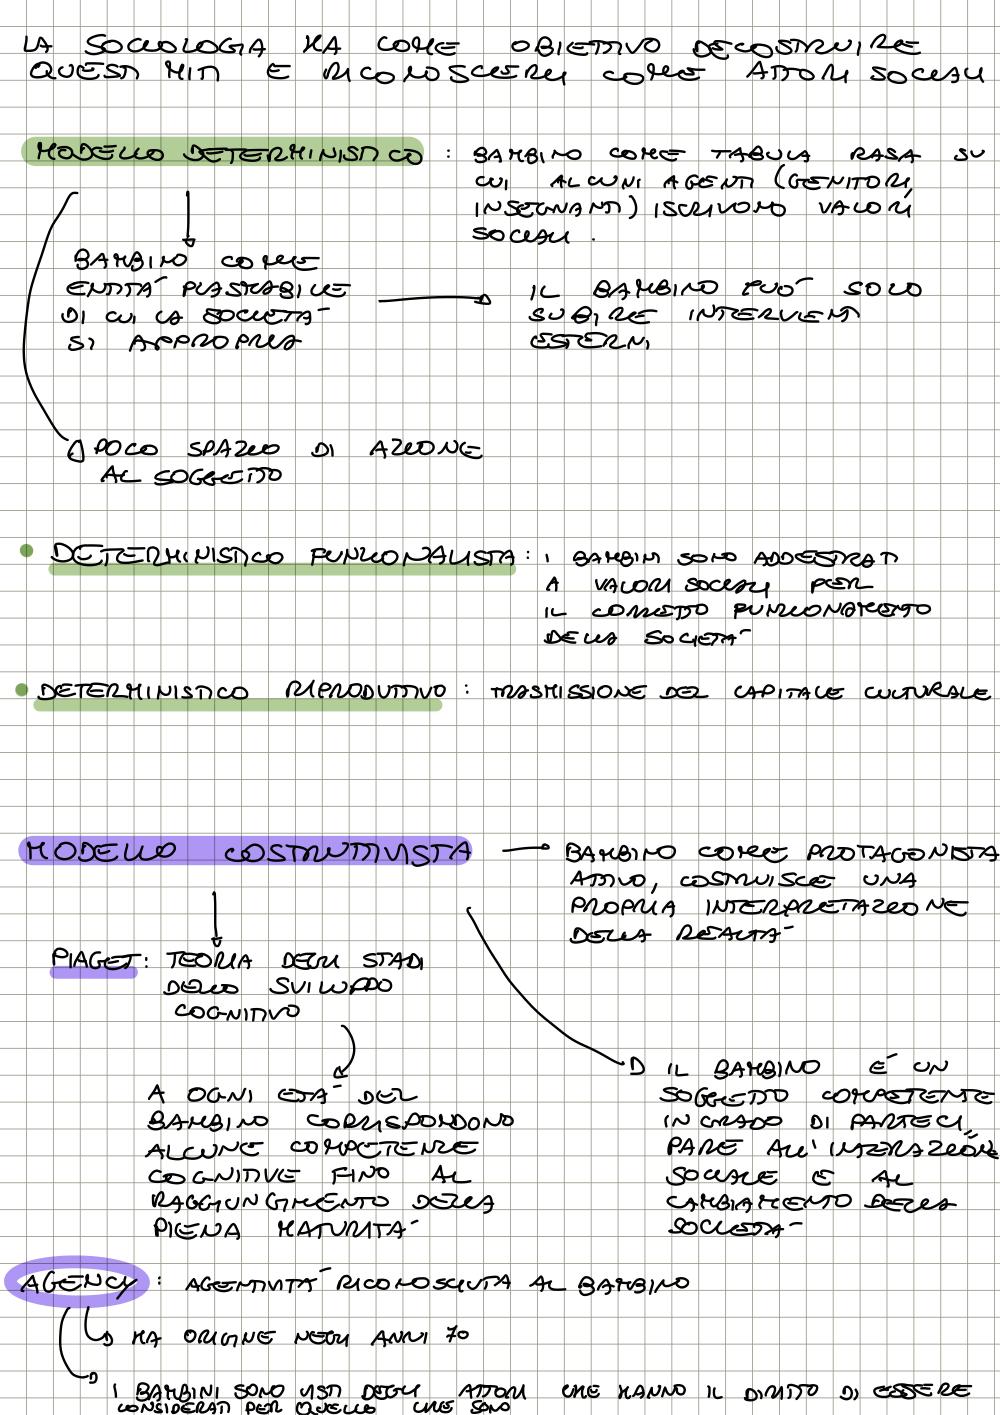 LA SOCIOLOGIA HA COME OBIETTIVO DECOSTRUIRE
QUESTI MITI E RICONOSCERLI COME ATTORI SOCIALI
MODELLO DETERMINISTICO : BAMBINO COME TABULA RASA SU
CUI ALCUNI AGENTI (GENITORI,
INSEGNANTI) ISCRIVONO VALORI
SOCIALI.
BAMBINO COME
ENTITÀ PLASMABILE
DI CUI LA SOCIETÀ
SI APPROPRIA
IL BAMBINO PUÒ SOLO
SUBIRE INTERVENTI
ESTERNI
POCO SPAZIO DI AZIONE
AL SOGGETTO
• DETERMINISTICO FUNZIONALISTA : I BAMBINI SONO ADDESTRATI
A VALORI SOCIALI PER
IL CORRETTO FUNZIONAMENTO
DELLA SOCIETÀ
• DETERMINISTICO RIPRODUTTIVO : TRASMISSIONE DEL CAPITALE CULTURALE
MODELLO COSTRUTTIVISTA
BAMBINO COME PROTAGONISTA
ATTIVO, COSTRUISCE UNA
PROPRIA INTERPRETAZIONE
DELLA REALTÀ
PIAGET : TEORIA DEGLI STADI
DELLO SVILUPPO
COGNITIVO
A OGNI ETÀ DEL
BAMBINO CORRISPONDONO
ALCUNE COMPETENZE
COGNITIVE FINO AL
RAGGIUNGIMENTO DELLA
PIENA MATURITÀ
IL BAMBINO È UN
SOGGETTO COMPETENTE
IN GRADO DI PARTECI,,
PARE ALL'INTERAZIONE
SOCIALE E AL
CAMBIAMENTO DELLA
SOCIETÀ
AGENCY : AGENTIVITÀ RICONOSCIUTA AL BAMBINO
HA ORIGINE NEGLI ANNI 70
I BAMBINI SONO VISTI DEGLI ATTORI CHE HANNO IL DIRITTO DI ESSERE
CONSIDERATI PER QUELLO CHE SONO